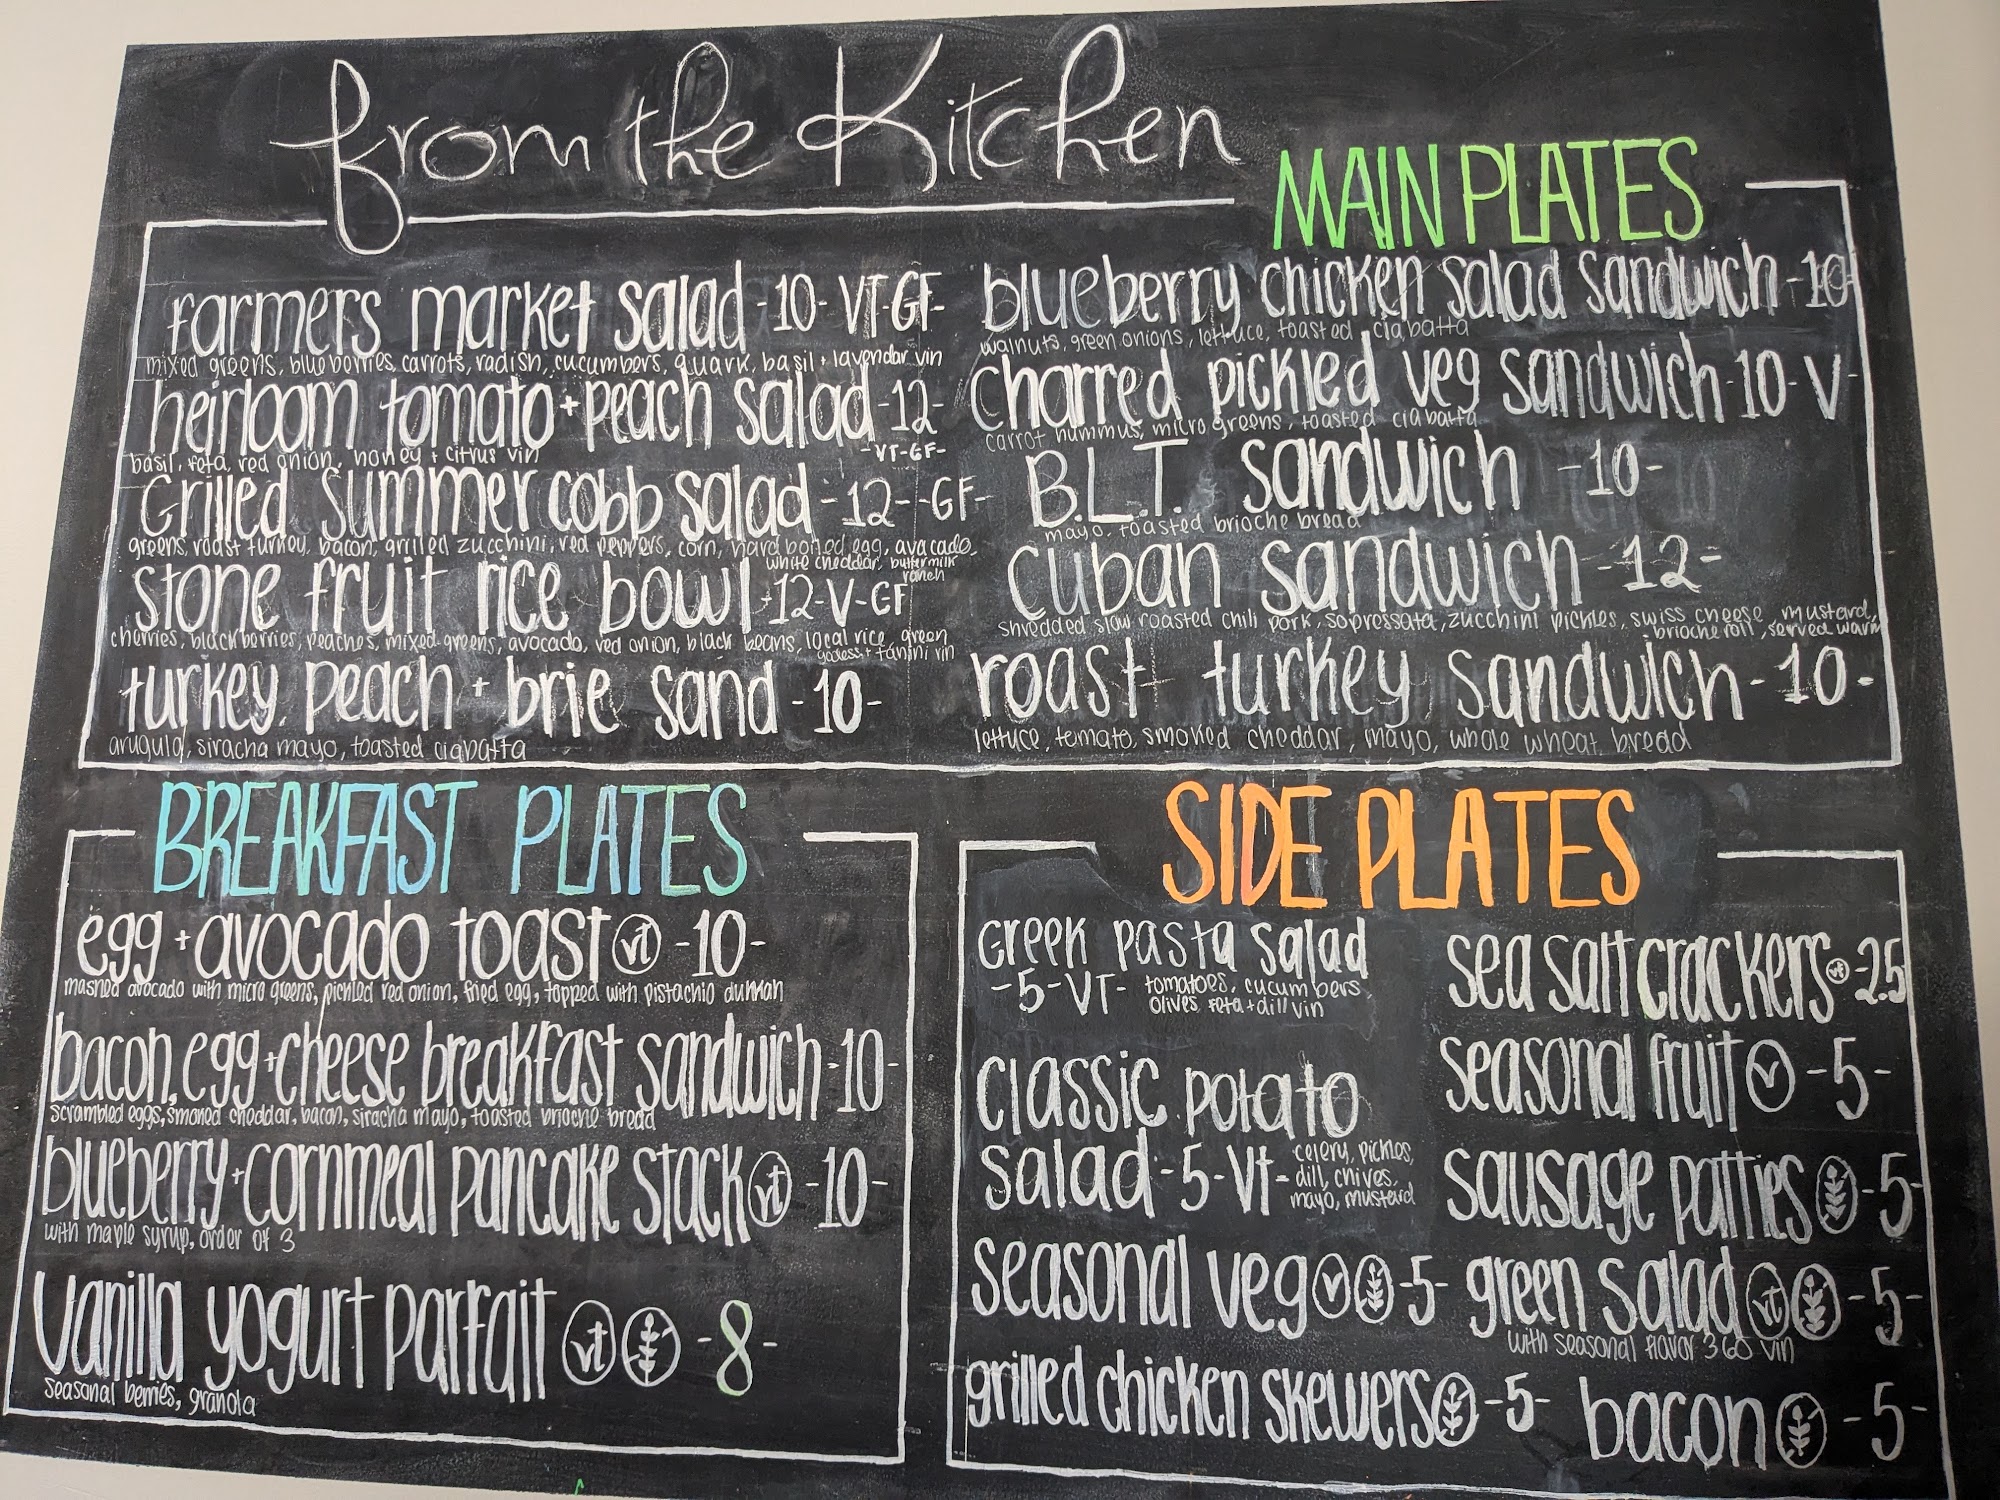 from the Kitchen
MAIN PLATES
farmers market salad -10- VT-GF-
mixed greens, blueberries, carrots, radish, cucumbers, quark, basil + lavendar vin
heirloom tomato + peach salad -12-
-VT-GF-
basil, feta, red onion, honey + citrus vin
Grilled summer cobb salad -12- -GF-
greens, roast turkey, bacon, grilled zucchini, red peppers, corn, hard boiled egg, avacado,
white cheddar, buttermilk
ranch
stone fruit rice bowl -12-V-GF
cherries, blackberries, peaches, mixed greens, avocado, red onion, black beans, local rice, green
goddess + vin
turkey, peach + brie sand -10-
arugula, siracha mayo, toasted ciabatta
blueberry chicken salad sandwich -10-
walnuts, green onions, lettuce, toasted ciabatta
charred pickled veg sandwich -10-V-
carrot hummus, micro greens, toasted ciabatta
B.L.T. sandwich -10-
mayo, toasted brioche bread
cuban sandwich -12-
shredded slow roasted chili pork, sopressata, zucchini pickles, swiss cheese, mustard,
brioche roll, served warm
roast turkey sandwich -10-
lettuce, tomato, smoked cheddar, mayo, whole wheat bread
BREAKFAST PLATES
egg + avocado toast vt -10-
mashed avocado with micro greens, pickled red onion, fried egg, topped with pistachio dukkah
bacon, egg + cheese breakfast sandwich -10-
scrambled eggs, smoked cheddar, bacon, siracha mayo, toasted brioche bread
blueberry + cornmeal pancake stack vt -10-
with maple syrup, order of 3
vanilla yogurt parfait vt -8-
seasonal berries, granola
SIDE PLATES
Greek pasta salad
-5-VT- tomatoes, cucumbers
olives, feta + dill vin
classic potato
salad -5-Vt- celery, pickles,
dill, chives,
mayo, mustard
seasonal veg v -5-
grilled chicken skewers -5-
sea salt crackers vt -2.5
seasonal fruit v -5-
sausage patties -5-
green salad vt -5-
with seasonal flavor 360 vin
bacon -5-